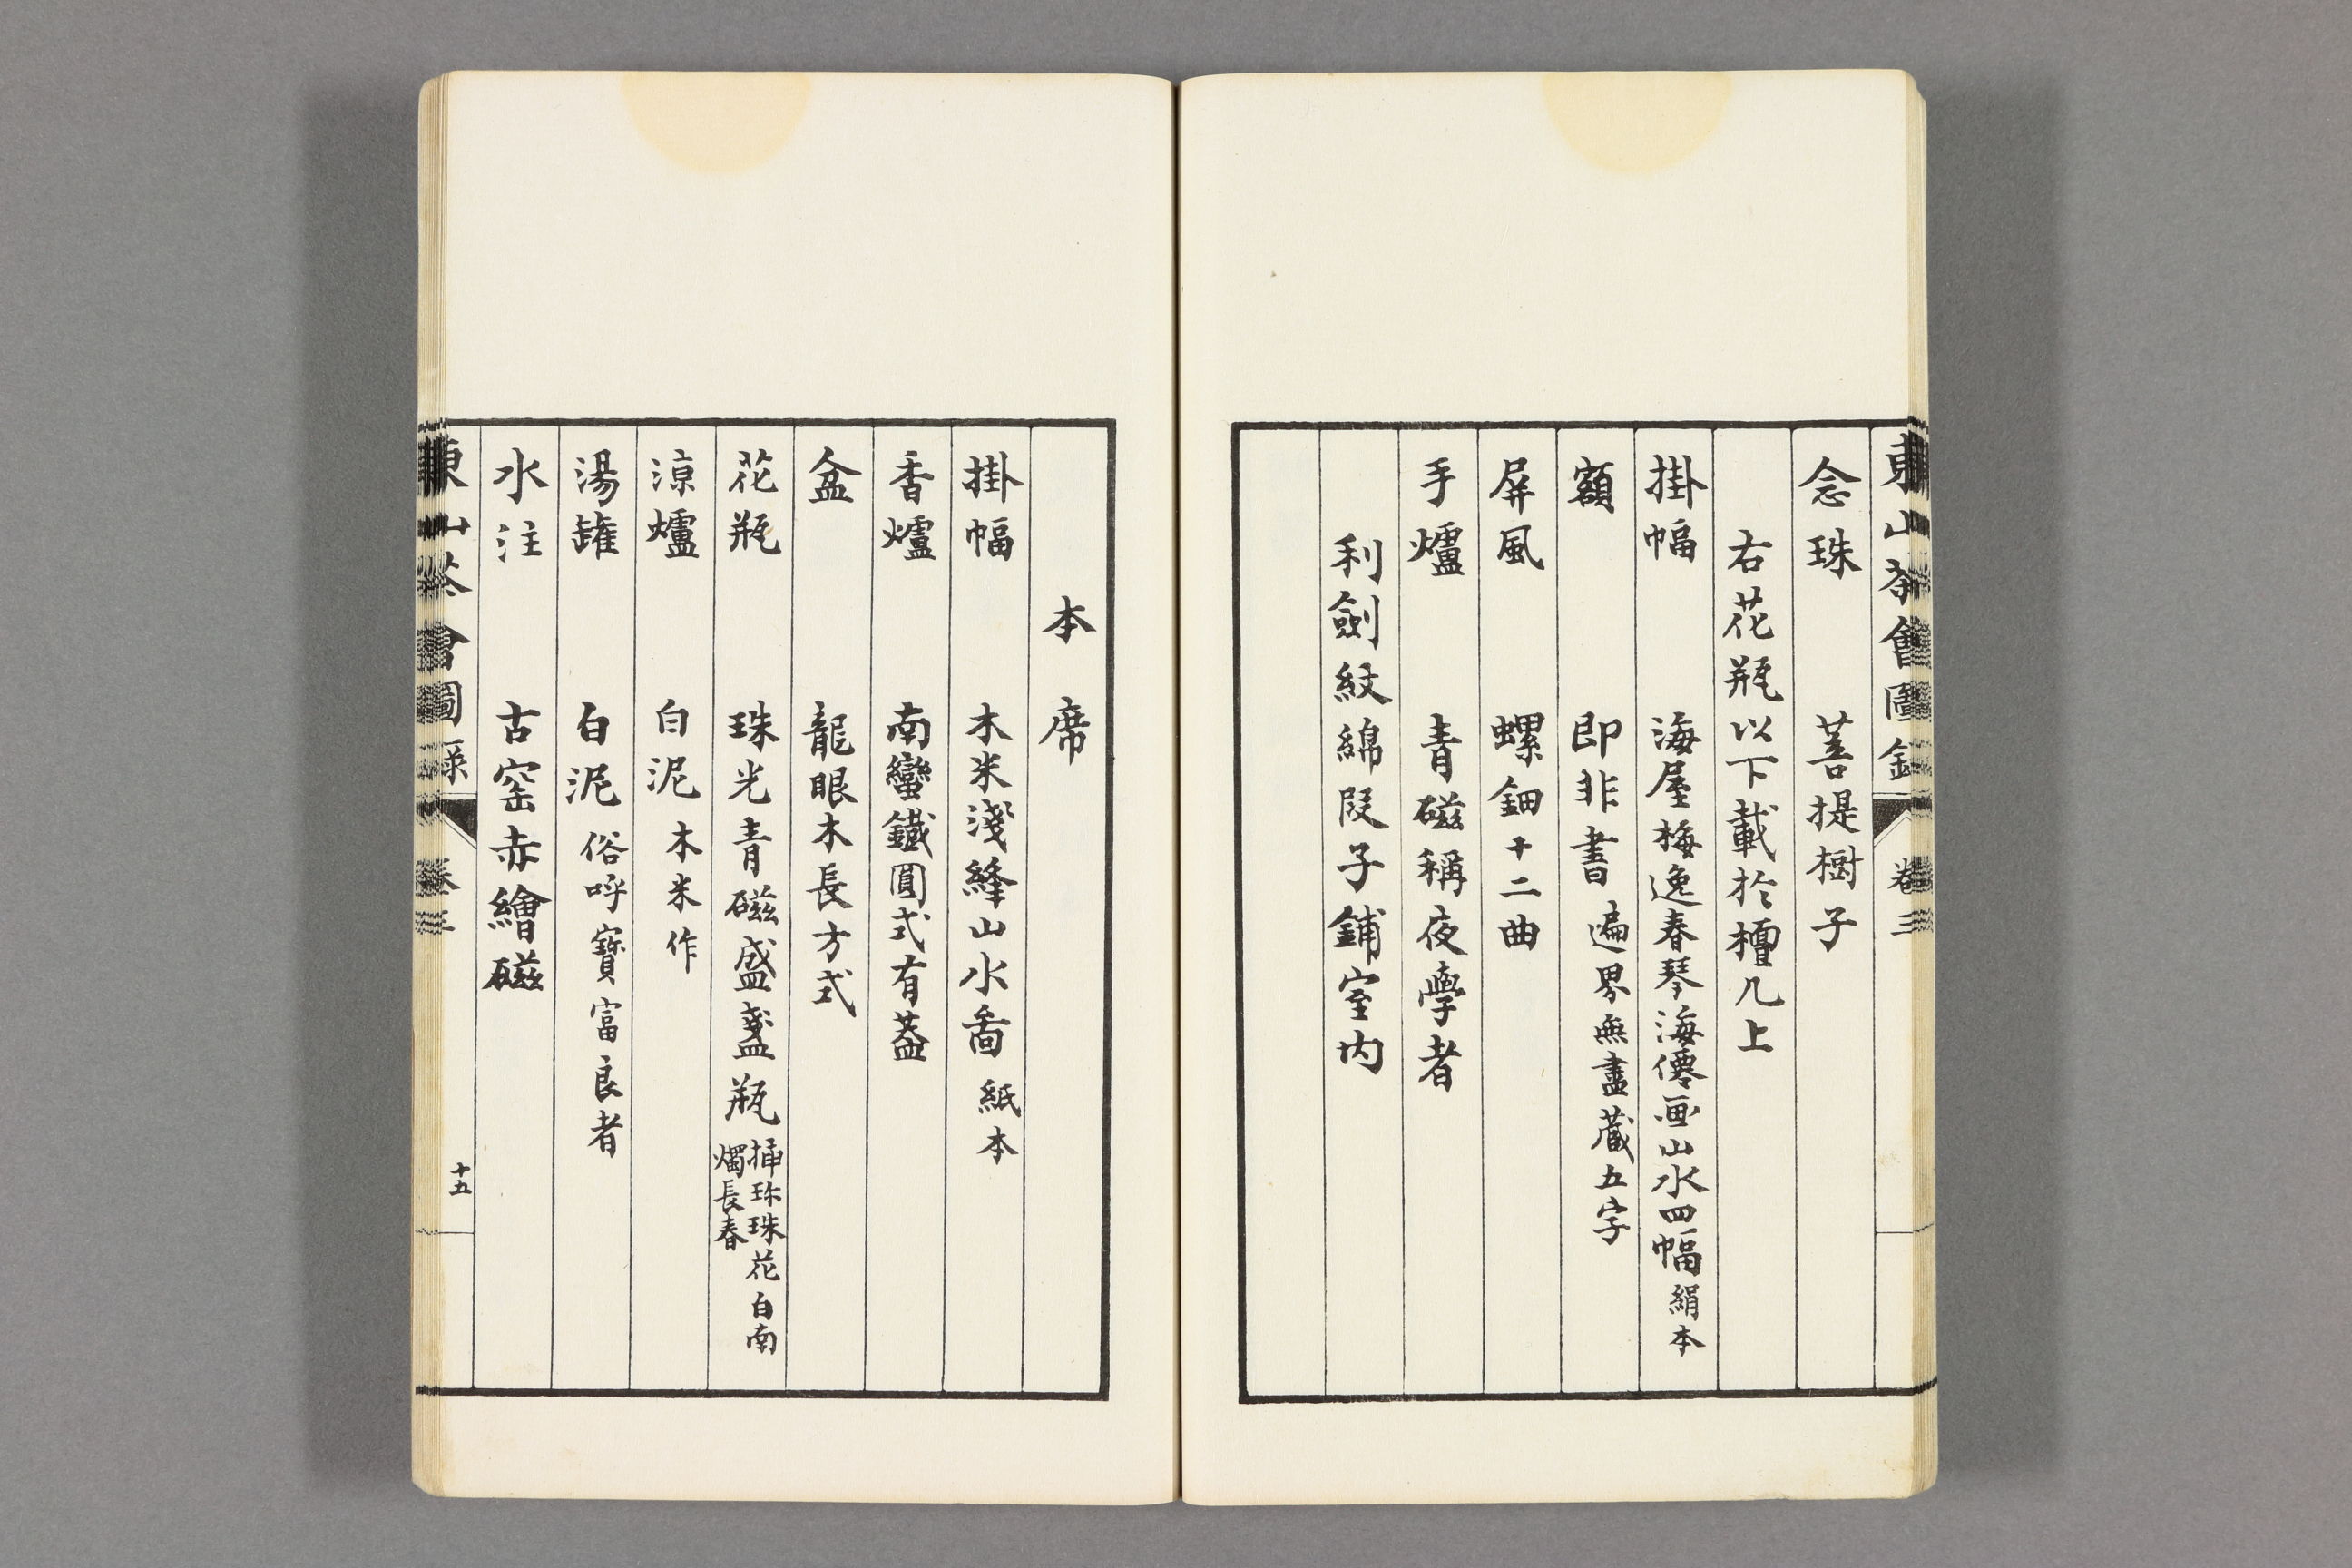 東山茶會圖錄 卷三
念珠 菩提樹子
右花瓶以下載於檀几上
掛幅 海屋梅逸春琴海僊画山水四幅 絹本
額 即非書 遍界無盡藏五字
屏風 螺鈿十二曲
手爐 青磁稱夜學者
利劍紋綿段子鋪室内
本席
掛幅 木米淺絳山水啚 紙本
香爐 南蠻鐵圓式有蓋
盆 龍眼木長方式
花瓶 珠光青磁盛盞瓶 揷珎珠花白南
燭長春
涼爐 白泥 木米作
湯罐 白泥 俗呼寶富良者
水注 古窑赤繪磁
東山茶會圖錄 卷三 十五